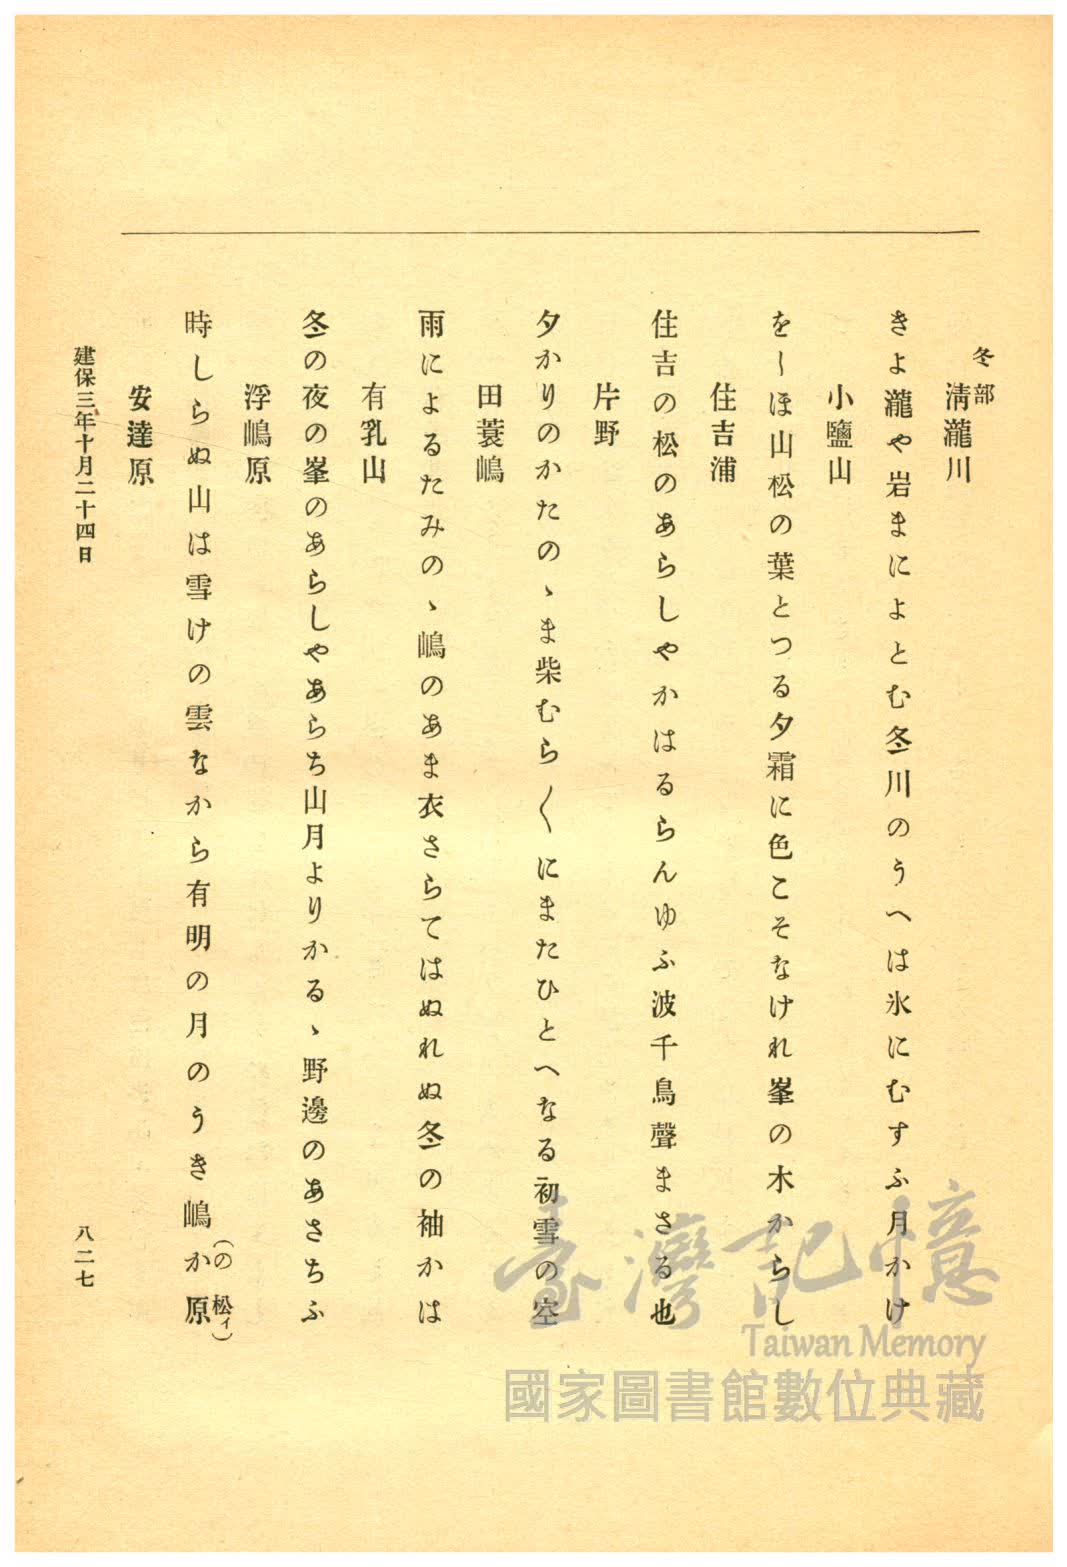 冬部
淸瀧川
きよ瀧や岩まによとむ冬川のうへは氷にむすふ月かけ
小鹽山
をしほ山松の葉とつる夕霜に色こそなけれ峯の木からし
住吉浦
住吉の松のあらしやかはるらんゆふ波千鳥聲まさる也
片野
夕かりのかたのゝま柴むら〱にまたひとへなる初雪の空
田蓑嶋
雨によるたみのゝ嶋のあま衣さらてはぬれぬ冬の袖かは
有乳山
冬の夜の峯のあらしやあらち山月よりかるゝ野邊のあさちふ
浮嶋原
時しらぬ山は雪けの雲なから有明の月のうき嶋か原
(の 松ィ)
安達原
建保三年十月二十四日
八二七
臺灣記憶
Taiwan Memory
國家圖書館數位典藏